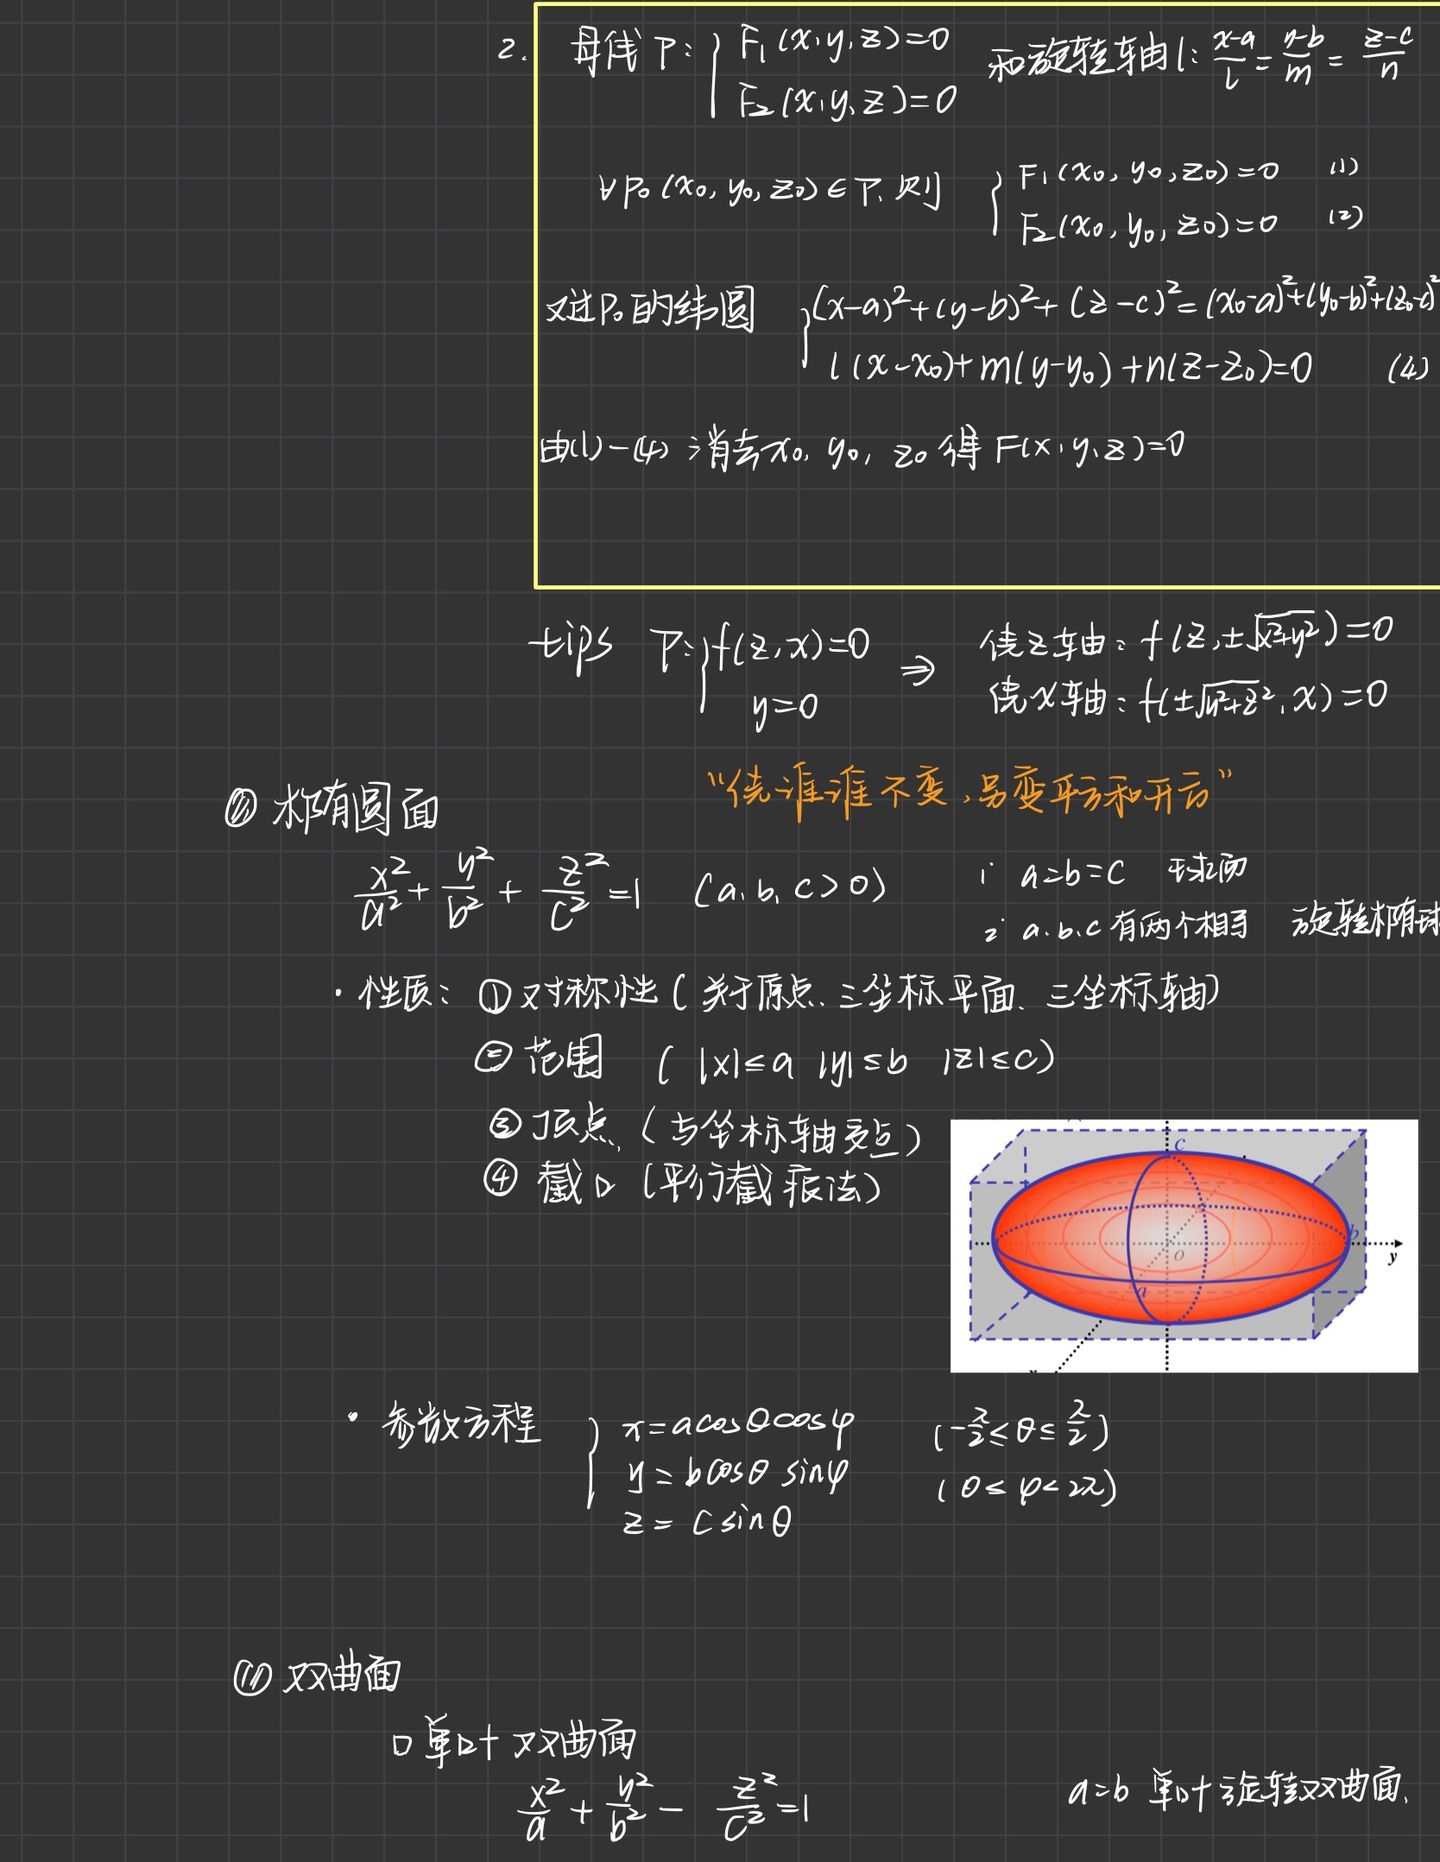 2. 母线 Γ: { F₁(x,y,z)=0 和旋转轴 l: (x-a)/l = (y-b)/m = (z-c)/n
F₂(x,y,z)=0
∀P₀(x₀,y₀,z₀)∈Γ, 则 { F₁(x₀,y₀,z₀)=0 (1)
F₂(x₀,y₀,z₀)=0 (2)
又过P₀的纬圆 { (x-a)²+(y-b)²+(z-c)²=(x₀-a)²+(y₀-b)²+(z₀-c)²
l(x-x₀)+m(y-y₀)+n(z-z₀)=0 (4)
由(1)-(4)消去x₀,y₀,z₀得 F(x,y,z)=0
tips Γ: { f(z,x)=0 ⇒ 绕z轴: f(z,±√(x²+y²))=0
y=0 绕x轴: f(±√(y²+z²),x)=0
"绕谁谁不变,另变平方和开方"
椭圆面
x²/a²+y²/b²+z²/c²=1 (a,b,c>0)
1° a=b=c 球面
2° a.b.c有两个相等 旋转椭球
· 性质: ①对称性(关于原点.三坐标平面.三坐标轴)
②范围 (|x|≤a |y|≤b |z|≤c)
③顶点(与坐标轴交点)
④截口(平行截痕法)
c
b
o
y
a
· 参数方程 { x=acosθcosφ (-π/2≤θ≤π/2)
y=bcosθ sinφ (0≤φ<2π)
z=csinθ
双曲面
单叶双曲面
x²/a+y²/b²-z²/c²=1 a=b 单叶旋转双曲面.